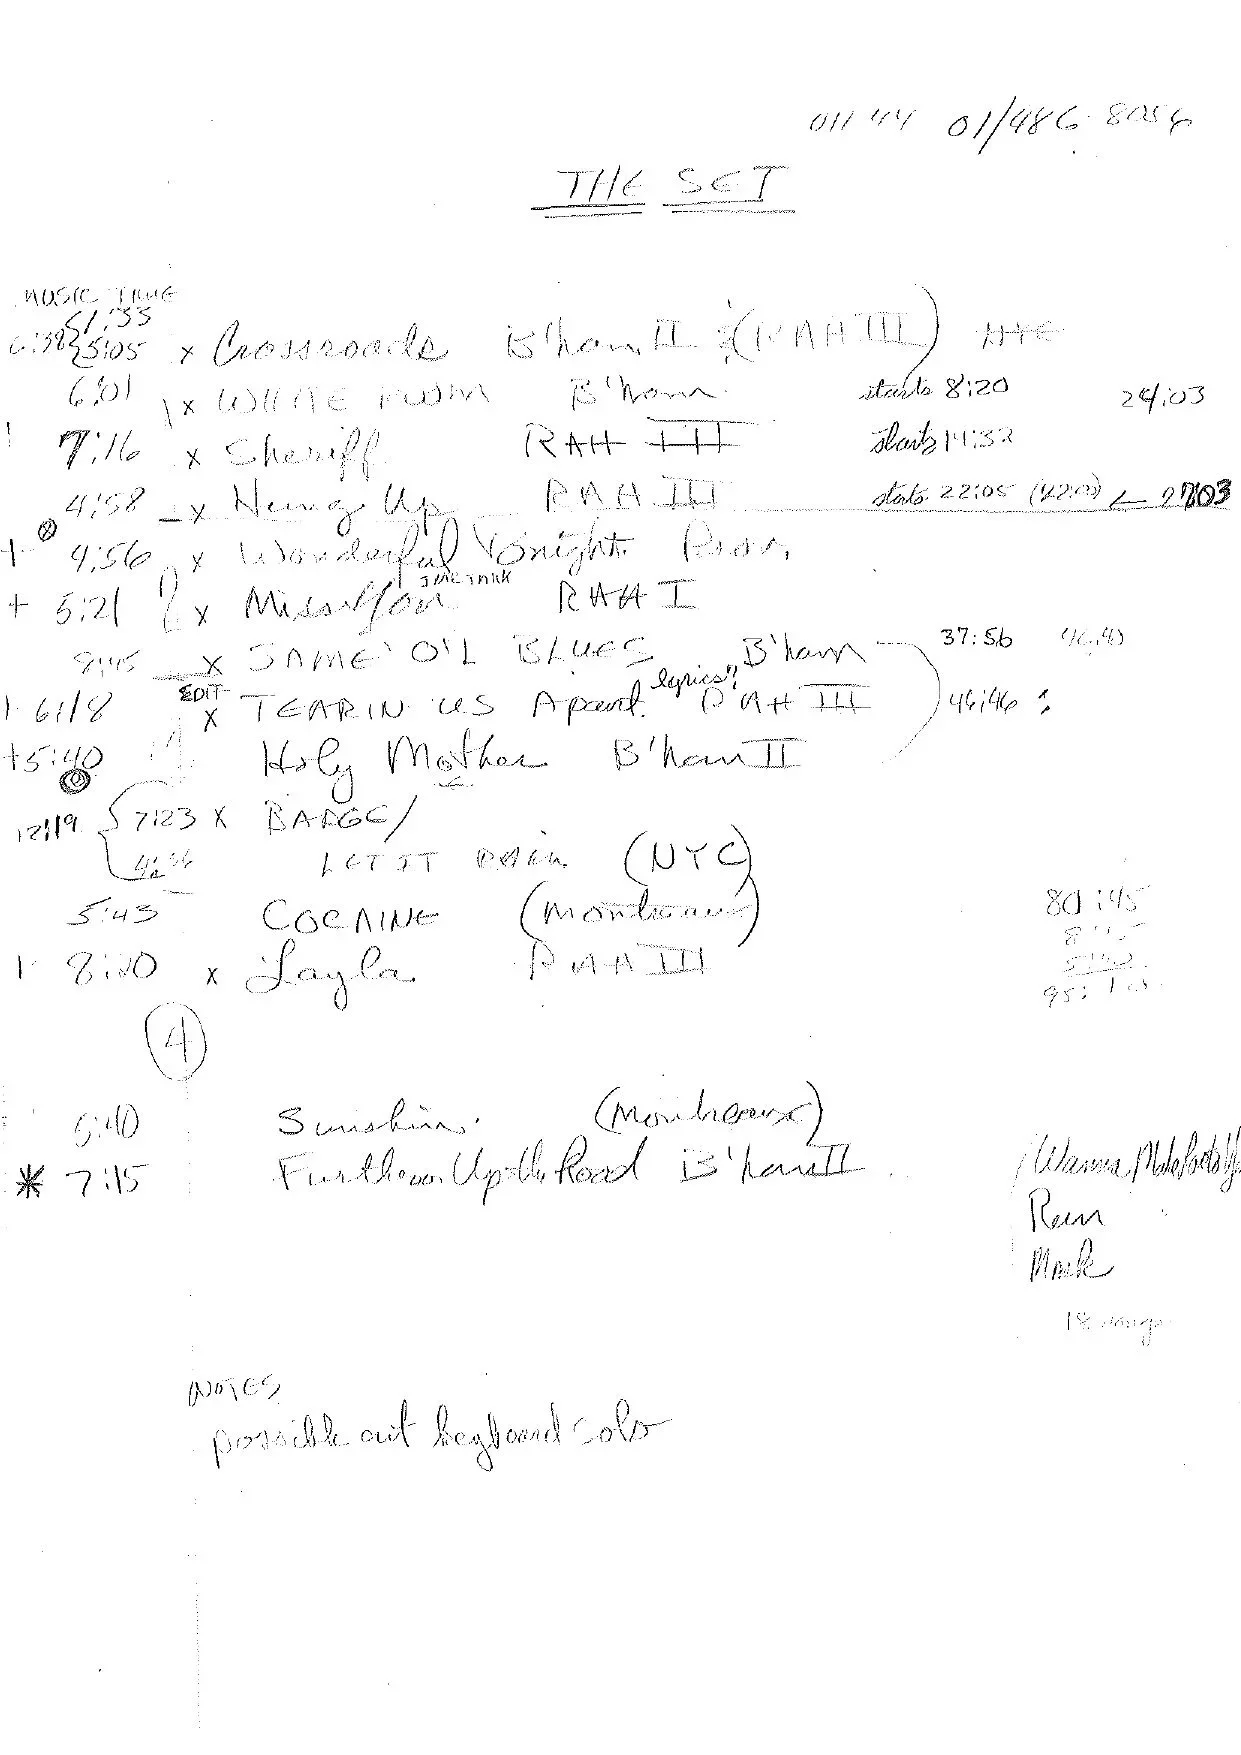 011 44 01/486-8056
THE SET
MUSIC TIME
1:33
6:38 5:05 x Crossroads B'ham II (RAH III) NYC
6:01 x WHITE ROOM B'ham starts 8:20 24:03
7:16 x Sheriff RAH III starts 14:32
4:58 x Hung Up RAH III starts 22:05 (22:03) ← 2703
+ 4:56 x Wonderful Tonight Prov.
+ 5:21 x Miss You RAH I
8:45 x SAME OL BLUES B'ham 37:56 46:40
EDIT lyrics?
+ 6:18 x TEARIN US Apart RAH III 46:46
+5:40 Holy Mother B'ham II
12:19 7:23 x BADGE/
4:56 LET IT RAIN (NYC)
5:43 COCAINE (Montreaux) 80:45
8:20 x Layla RAH III 5:40
95:
4
5:40 Sunshine (Montreaux)
* 7:15 Further Up the Road B'ham II
I Wanna Make Love to You
Run
Mark
18 songs
NOTES
possible cut keyboard solo